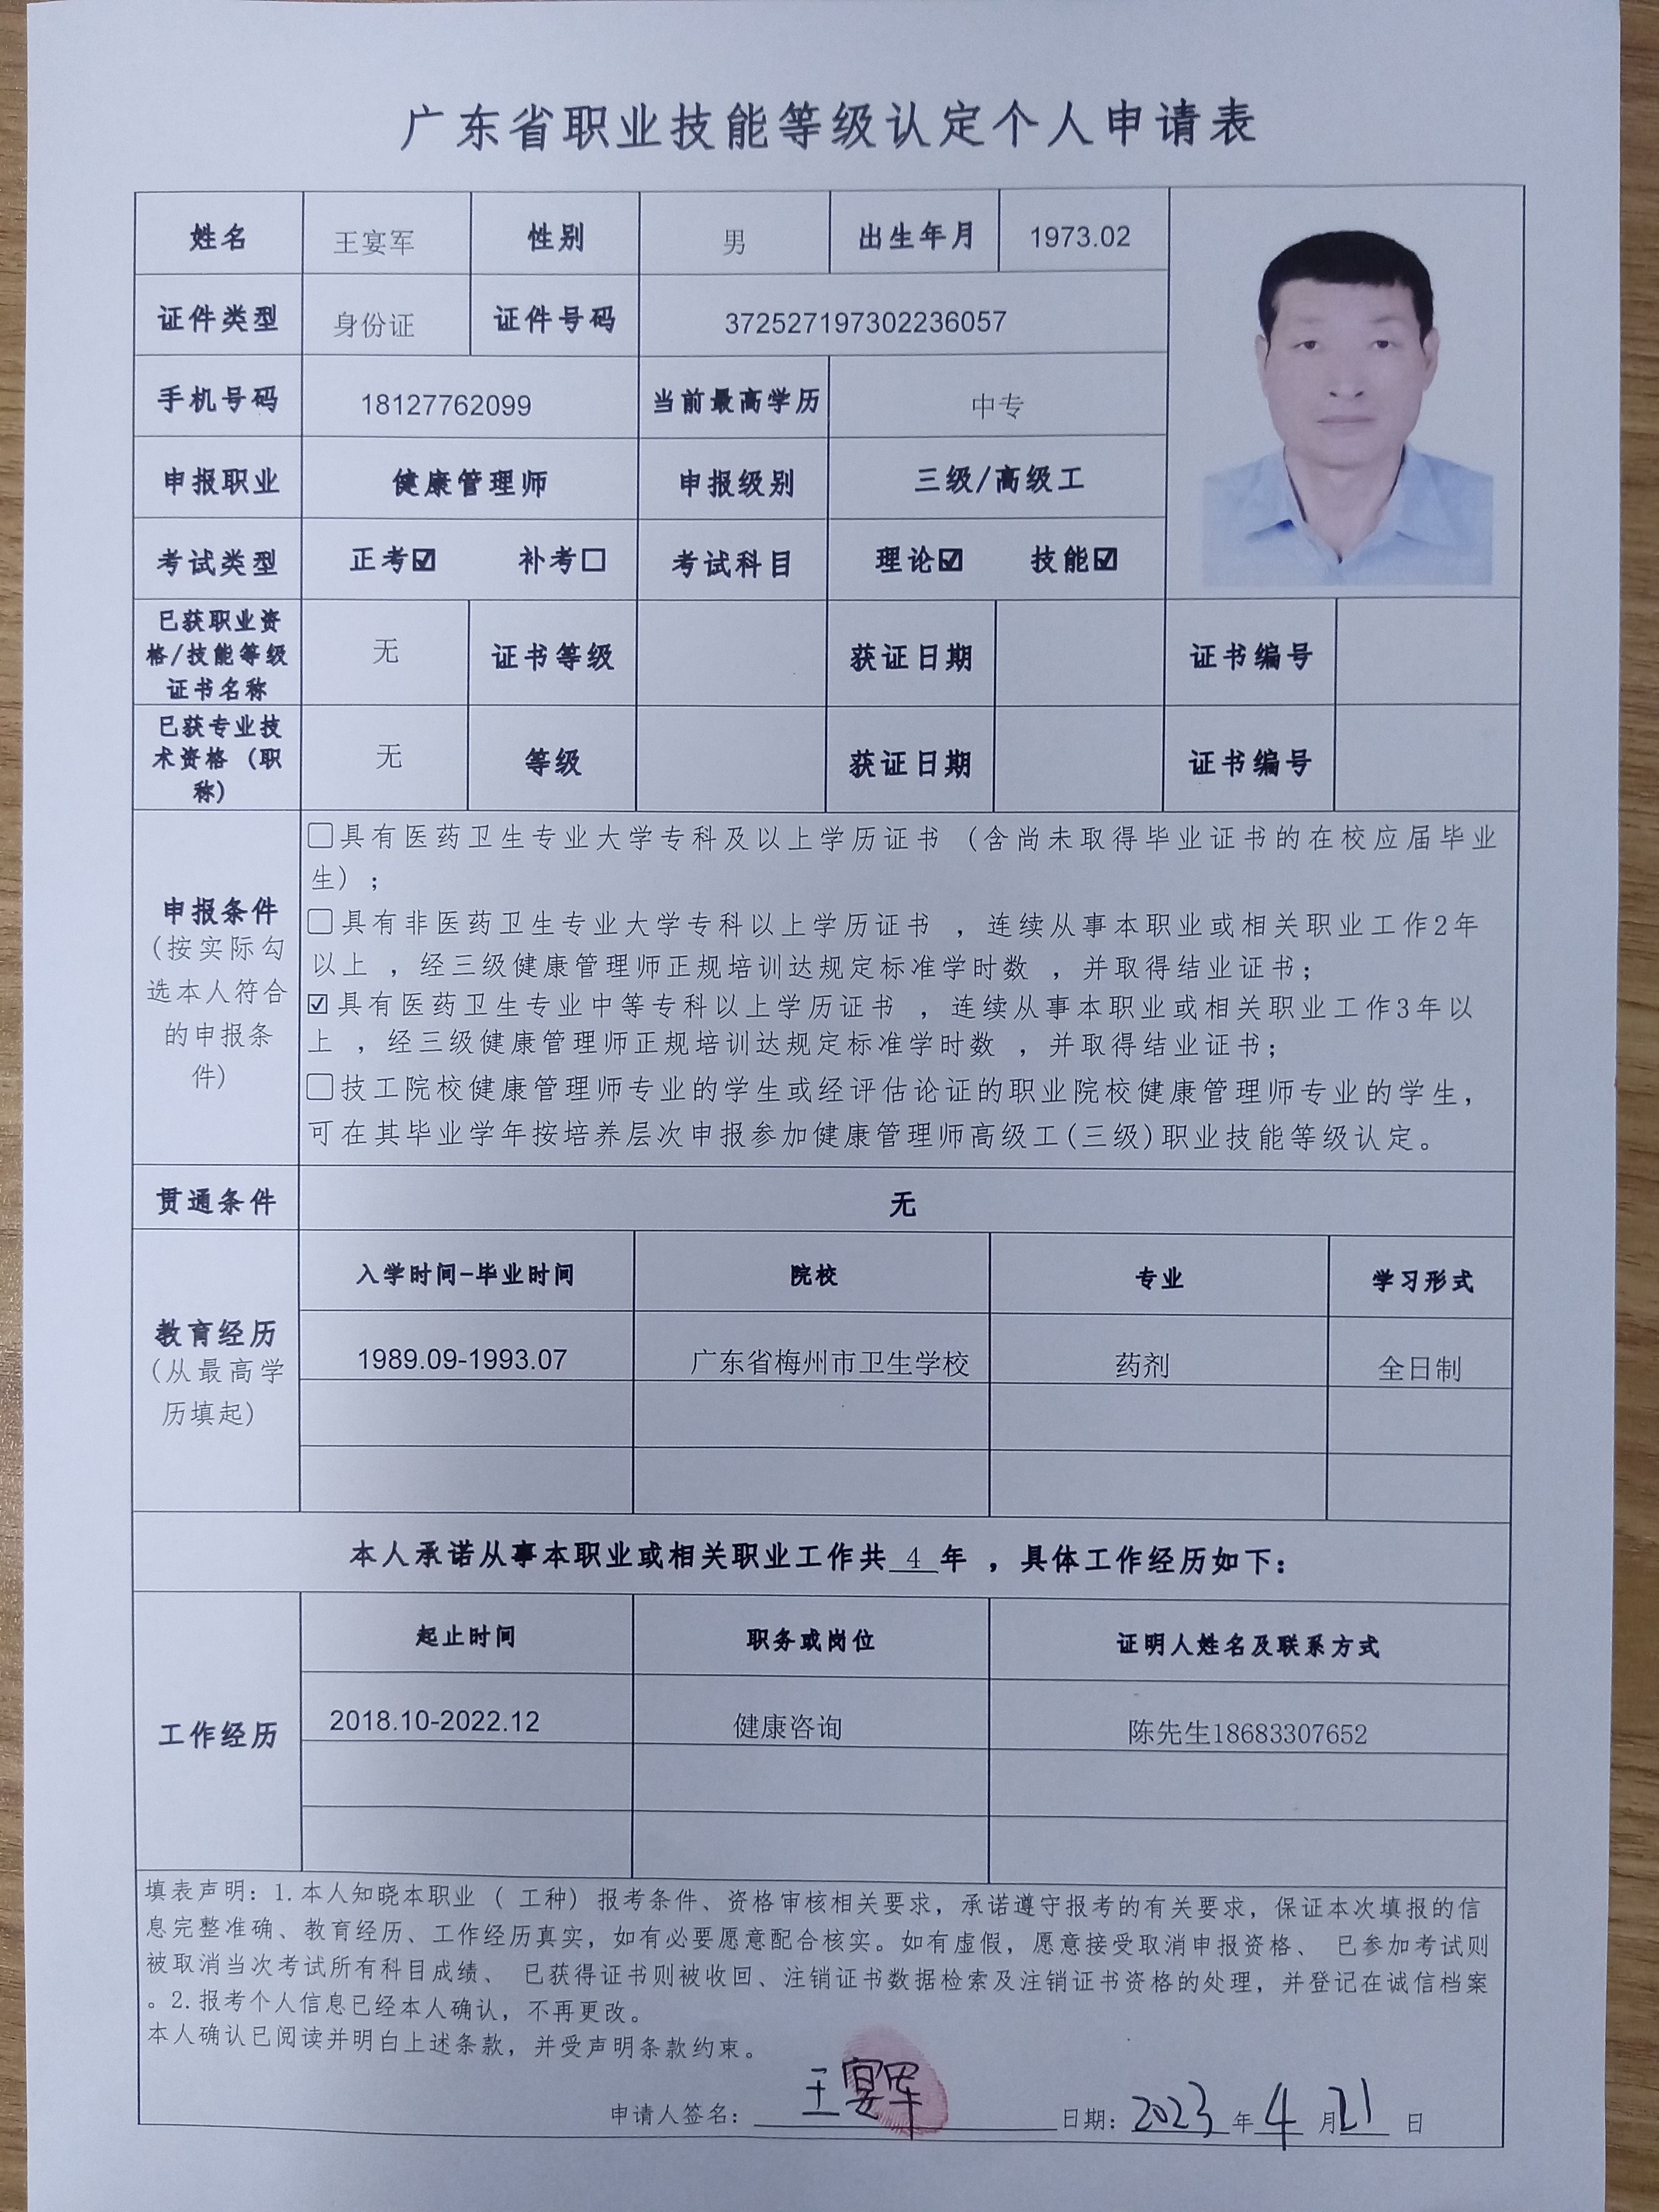 广东省职业技能等级认定个人申请表
姓名 王宴军 性别 男 出生年月 1973.02
证件类型 身份证 证件号码 372527197302236057
手机号码 18127762099 当前最高学历 中专
申报职业 健康管理师 申报级别 三级/高级工
考试类型 正考☑ 补考☐ 考试科目 理论☑ 技能☑
已获职业资
格/技能等级
证书名称
无 证书等级 获证日期 证书编号
已获专业技
术资格（职
称）
无 等级 获证日期 证书编号
申报条件
（按实际勾
选本人符合
的申报条
件）
☐具有医药卫生专业大学专科及以上学历证书（含尚未取得毕业证书的在校应届毕业
生）；
☐具有非医药卫生专业大学专科以上学历证书，连续从事本职业或相关职业工作2年
以上，经三级健康管理师正规培训达规定标准学时数，并取得结业证书；
☑具有医药卫生专业中等专科以上学历证书，连续从事本职业或相关职业工作3年以
上，经三级健康管理师正规培训达规定标准学时数，并取得结业证书；
☐技工院校健康管理师专业的学生或经评估论证的职业院校健康管理师专业的学生，
可在其毕业学年按培养层次申报参加健康管理师高级工(三级)职业技能等级认定。
贯通条件 无
教育经历
（从最高学
历填起）
入学时间-毕业时间 院校 专业 学习形式
1989.09-1993.07 广东省梅州市卫生学校 药剂 全日制
本人承诺从事本职业或相关职业工作共 4 年，具体工作经历如下：
工作经历
起止时间 职务或岗位 证明人姓名及联系方式
2018.10-2022.12 健康咨询 陈先生18683307652
填表声明：1.本人知晓本职业（工种）报考条件、资格审核相关要求，承诺遵守报考的有关要求，保证本次填报的信
息完整准确、教育经历、工作经历真实，如有必要愿意配合核实。如有虚假，愿意接受取消申报资格、 已参加考试则
被取消当次考试所有科目成绩、 已获得证书则被收回、注销证书数据检索及注销证书资格的处理，并登记在诚信档案
。2.报考个人信息已经本人确认，不再更改。
本人确认已阅读并明白上述条款，并受声明条款约束。
申请人签名：王宴军 日期：2023年4月21日